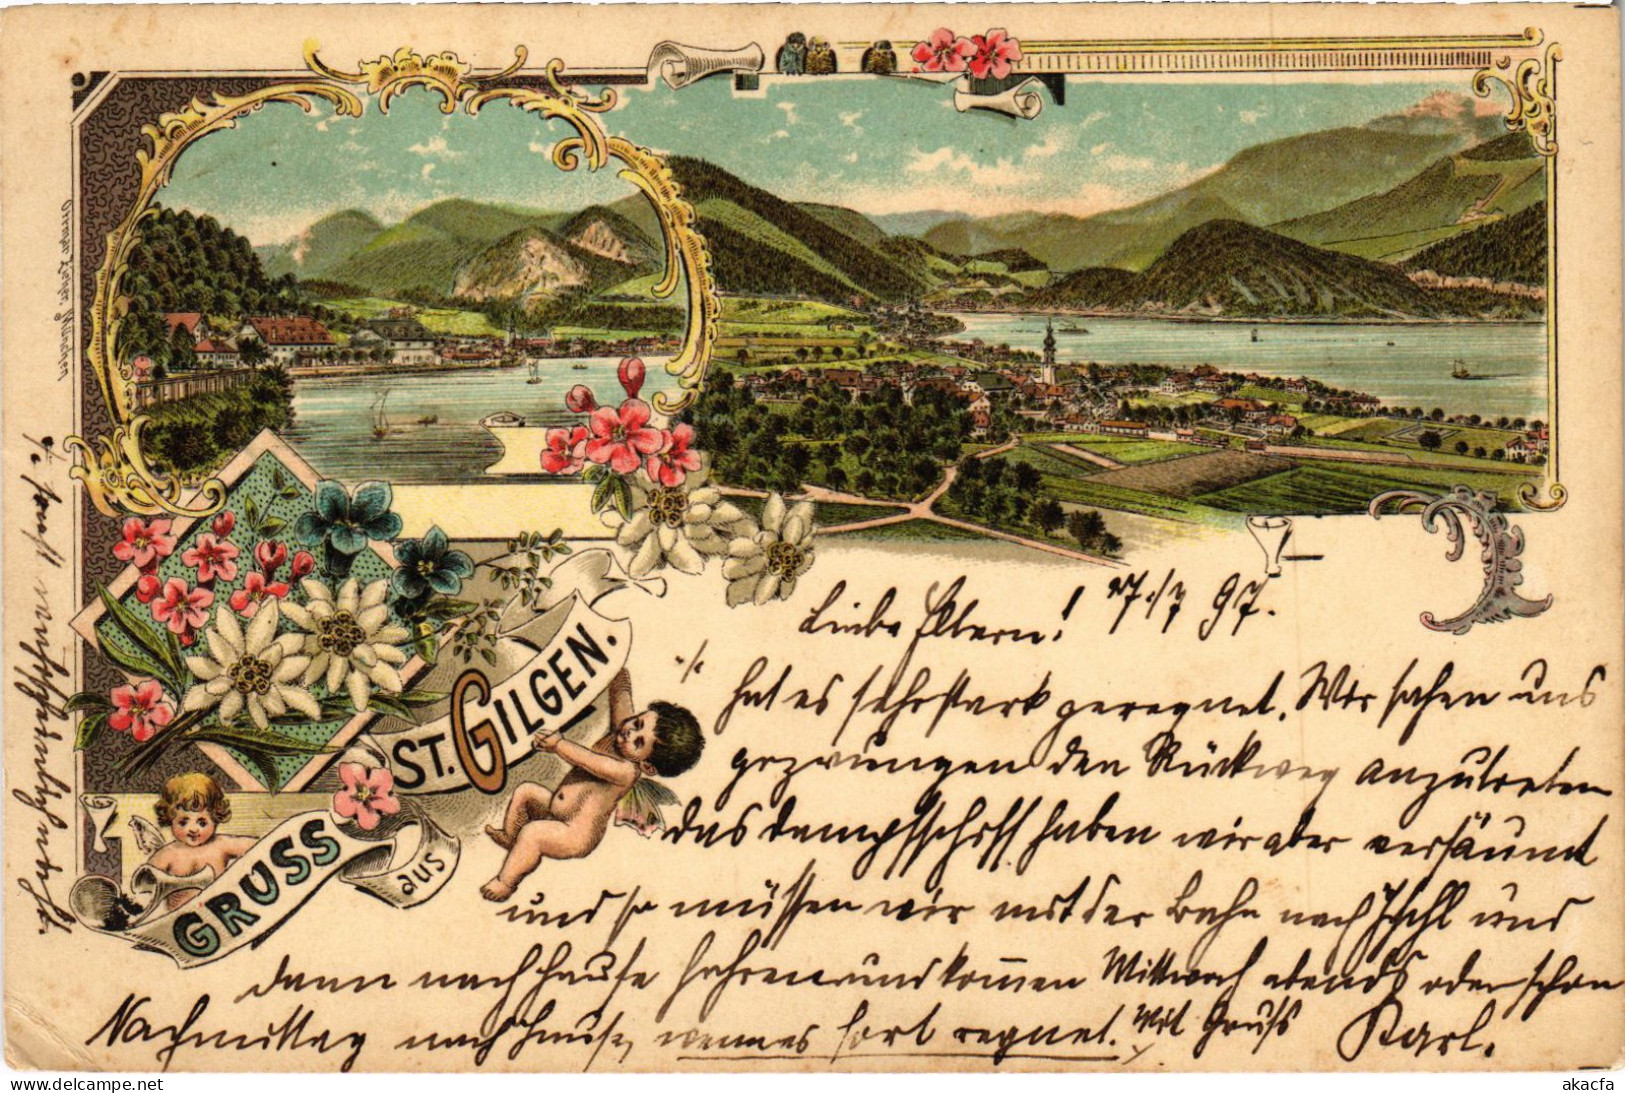 Ottmar Zieher, München
GRUSS
aus
ST. GILGEN.
Liebe Eltern! 27./7 97.
hat es sehr stark geregnet. Wir sahen uns
gezwungen den Rückweg anzutreten
das Dampfschiff haben wir aber versäumt
und so müssen wir mit der Bahn nach Ischl und
dann nach Hause fahren und kommen Mittwoch abends oder schon
Nachmittag nach Hause, wenn es fort regnet. Mit Gruß Karl.
akacfa